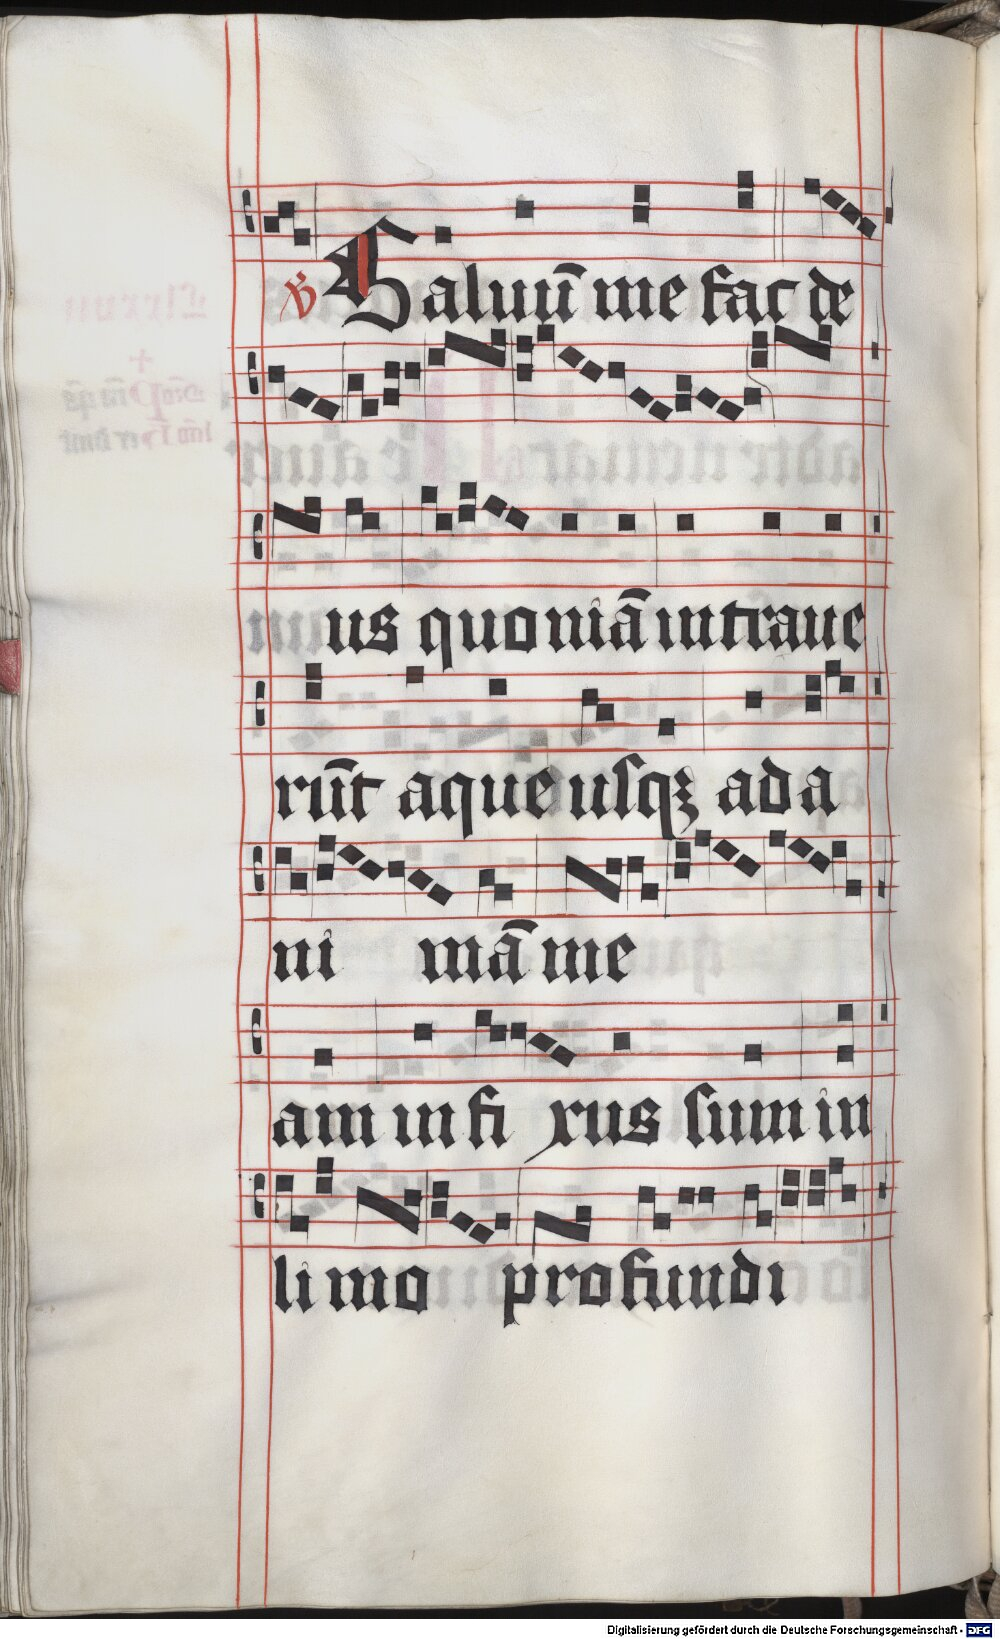 ℣ Saluū me fac de
us quoniā intraue
rūt aque usqꝫ ad a
ni mā me
am infi xus sum in
limo profundi
Digitalisierung gefördert durch die Deutsche Forschungsgemeinschaft - DFG